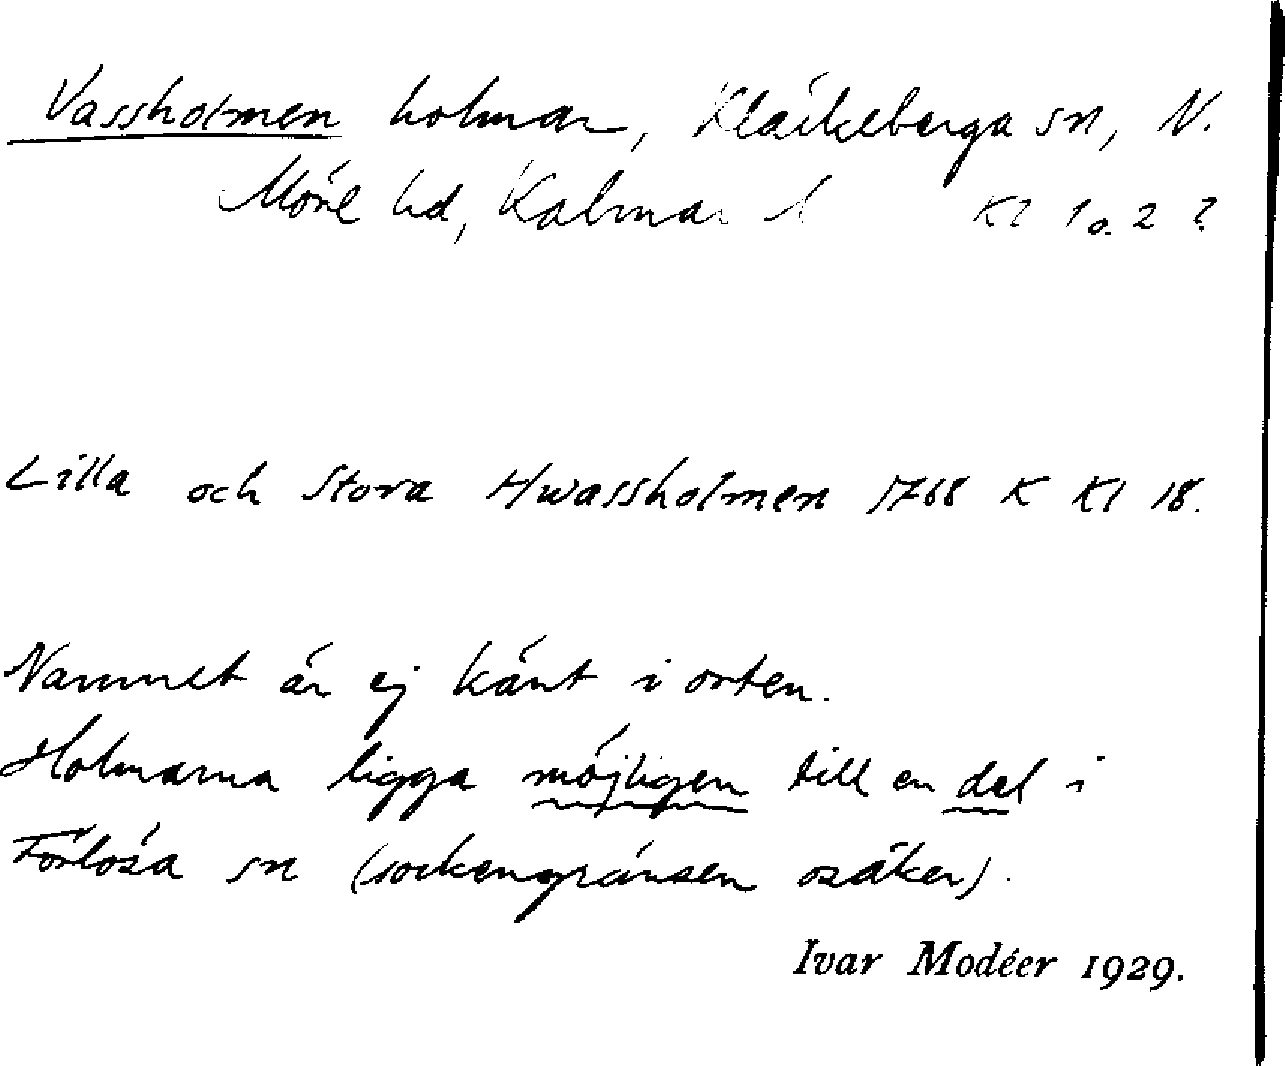 Vassholmen holmar, Kläckeberga sn, N.
Möre hd, Kalmar l Kl 1 o. 2 ?
Lilla och Stora Hwassholmen 1768 K Kl 18.
Namnet är ej känt i orten.
Holmarna ligga möjligen till en del i
Förlösa sn (sockengränsen osäker).
Ivar Modéer 1929.